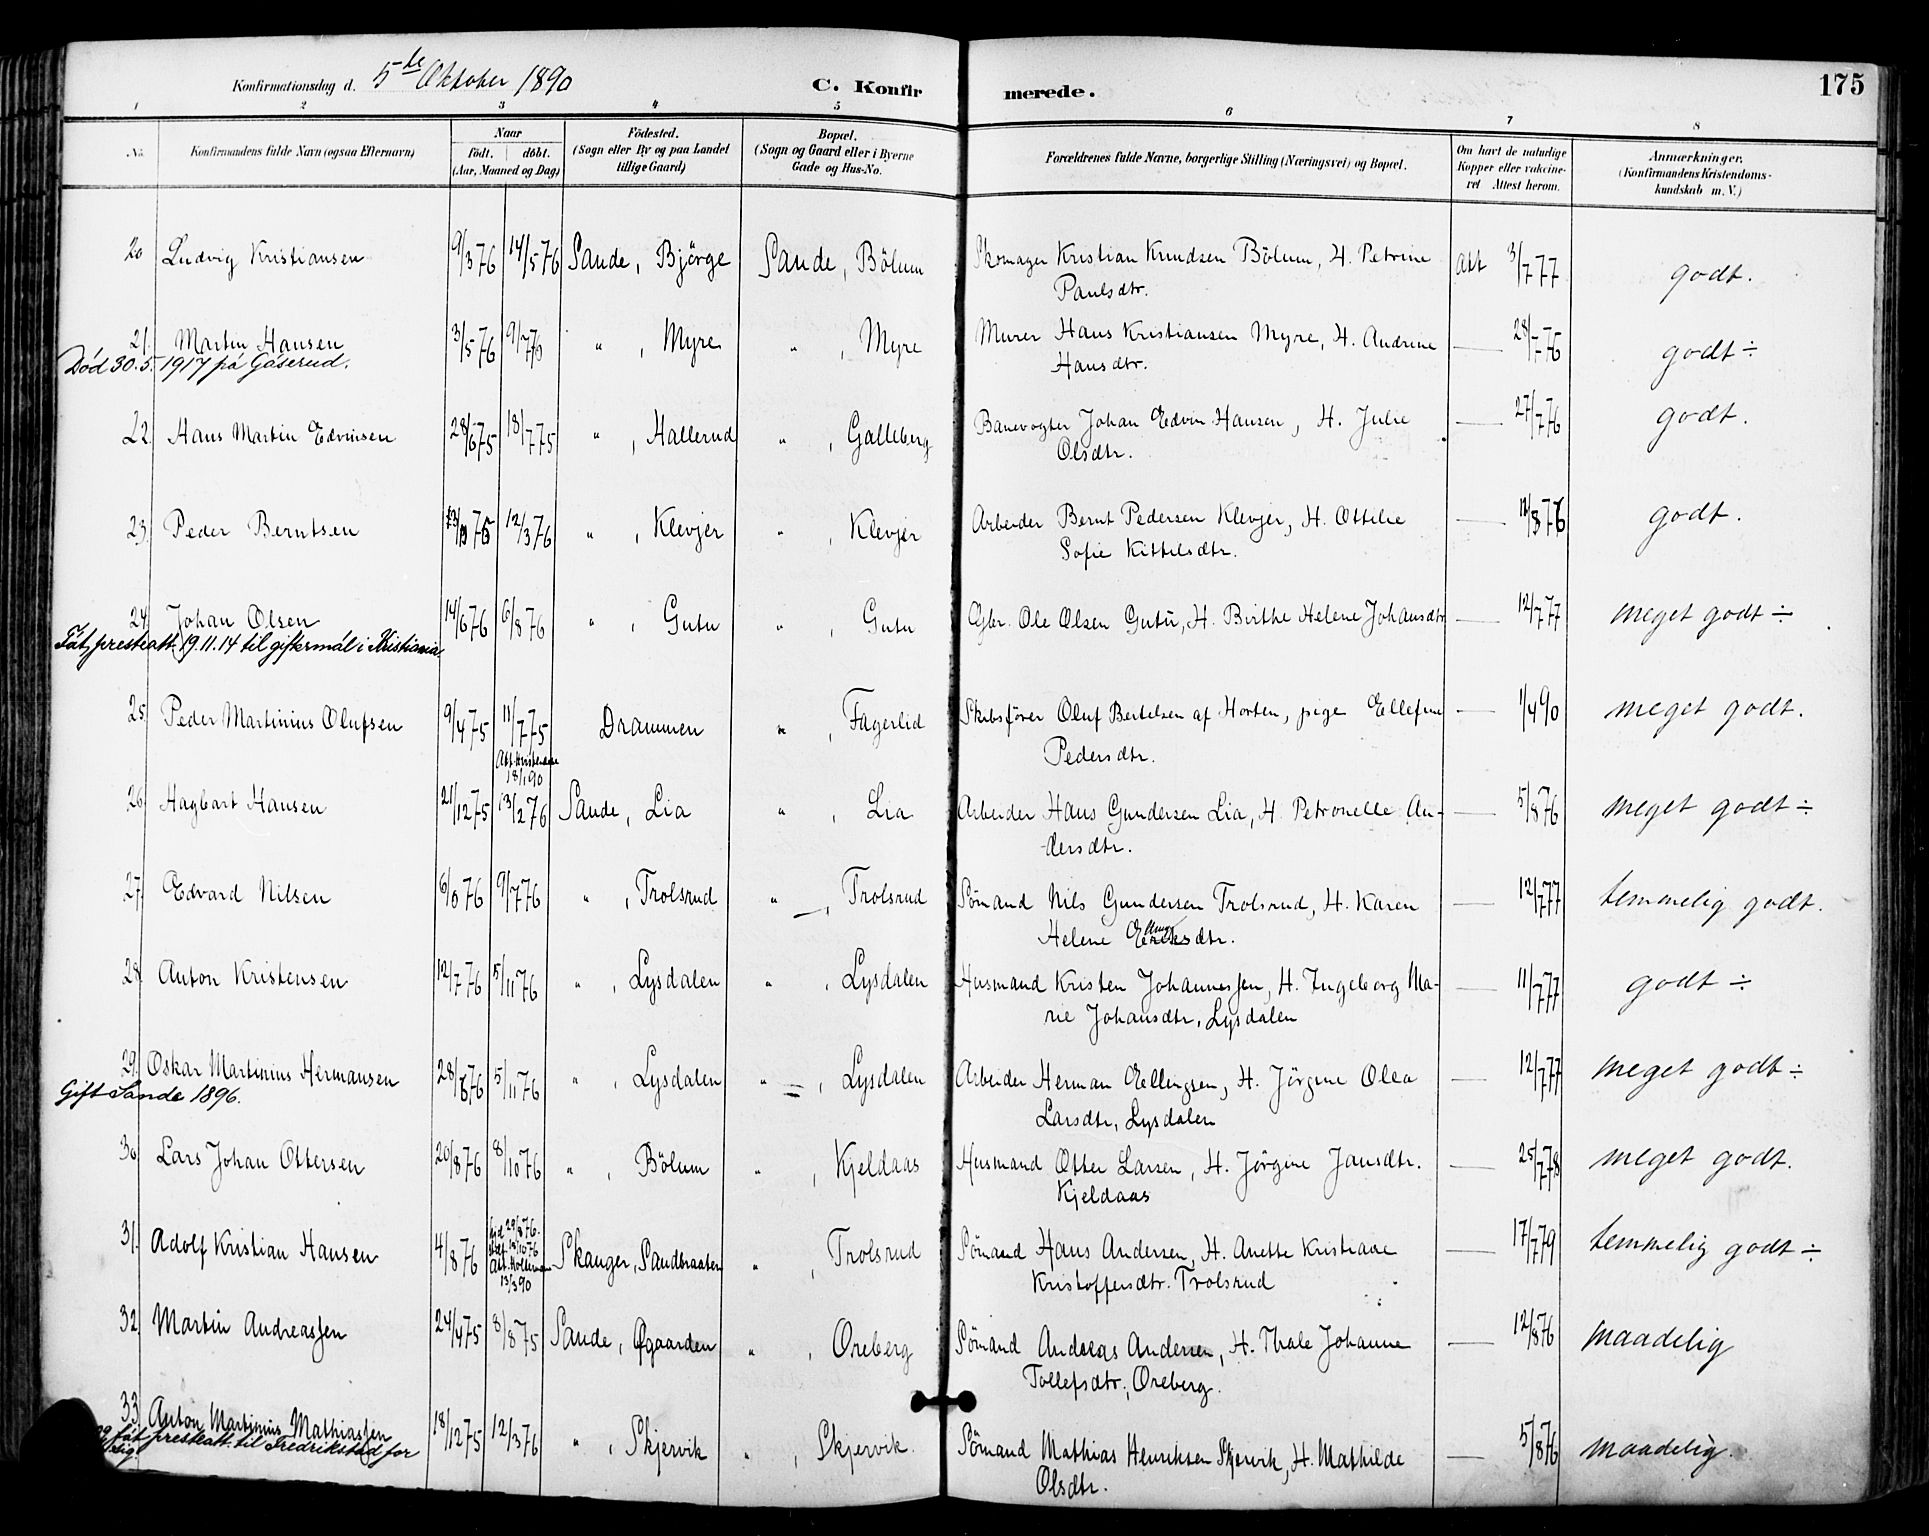 Konfirmationsdag d. 5te Oktober 1890 C. Konfirmerede. 175
1 2 3 4 5 6 7 8
No. Konfirmandens fulde Navn (ogsaa Efternavn) Naar födt. döbt. (Aar, Maaned og Dag) Födested. (Sogn eller By og paa Landet tillige Gaard) Bopæl. (Sogn og Gaard eller i Byerne Gade og Hus-No. Forældrenes fulde Navne, borgerlige Stilling (Næringsvei) og Bopæl. Om havt de naturlige Kopper eller vaccineret Attest herom. Anmærkninger. (Konfirmandens Kristendomskundskab m. V.)
20 Ludvig Kristiansen 9/3 76 14/5 76 Sande, Bjørge Sande, Bölum Skomager Kristian Knudsen Bölum, H. Petrine Att 3/7 77 godt.
Paulsdtr.
21. Martin Hansen 3/5 76 9/7 76 " , Myre " , Myre Murer Hans Kristiansen Myre, H. Andrine — 28/7 76 godt ÷
Død 30.5.1917 på Gåserud. Hansdtr.
22. Hans Martin Edvinsen 28/6 75 18/7 75 " , Hallerud " , Galleberg Banevogter Johan Edvin Hansen, H. Julie — 27/7 76 godt.
Olsdtr.
23. Peder Berntsen 12/3 76 " , Klevjer " , Klevjer Arbeider Bernt Pedersen Klevjer, H. Ottilie — godt.
Sofie Kittilsdtr.
24. Johan Olsen 14/6 76 6/8 76 " , Gutu " , Gutu Gbr. Ole Olsen Gutu, H. Birthe Helene Johansdtr — 12/7 77 meget godt ÷
Fåt presteatt. 19.11.14 til giftermål i Kristiania.
25. Peder Martinius Olufsen 9/4 75 11/7 75 Drammen " , Fagerlid Skibsfører Oluf Bertelsen af Horten, pige Ellefine — 1/4 90 meget godt.
18/1 90 Pedersdtr.
26. Hagbart Hansen 21/12 75 13/2 76 Sande, Lia " , Lia Arbeider Hans Gundersen Lia, H. Petronelle An- — 5/8 76 meget godt ÷
dersdtr.
27. Edvard Nilsen 9/7 76 " , Trolsrud " , Trolsrud Sömand Nils Gundersen Trolsrud, H. Karen — 12/7 77 temmelig godt.
Helene
28. Anton Kristensen 12/7 76 5/11 76 " , Lysdalen " , Lysdalen Husmand Kristen Johannessen, H. Ingeborg Ma- — 11/7 77 godt ÷
rie Johansdtr, Lysdalen
29. Oskar Martinius Hermansen 5/11 76 " , Lysdalen " , Lysdalen Arbeider Herman Ellingsen, H. Jørgine Olea — 12/7 77 meget godt ÷
Gift Sande 1896. Larsdtr, Lysdalen
30 Lars Johan Ottersen 20/8 76 8/10 76 " , Bölum " , Kjeldaas Husmand Otter Larsen, H. Jørgine Jansdtr. — 25/7 78 meget godt.
Kjeldaas
31. Adolf Kristian Hansen 4/8 76 29/8 76. 18/10 76 Skauger, Sandbraaten " , Trolsrud Sömand Hans Andersen, H. Anette Kristiane — 17/7 79 temmelig godt ÷
13/3 90 Kristoffersdtr. Trolsrud
32. Martin Andreassen 24/4 75 8/8 75 Sande, Øgaarden " , Oreberg Sömand Andreas Andersen, H. Thale Johanne — 12/8 76 maadelig
Tollefsdtr., Oreberg.
33. Anton Martinius Mathiassen 18/12 75 12/3 76 " , Skjervik " , Skjervik. Sömand Mathias Henriksen Skjervik, H. Mathilde — 5/8 76 maadelig.
fåt presteatt. til Fredrikstad for Olsdtr.